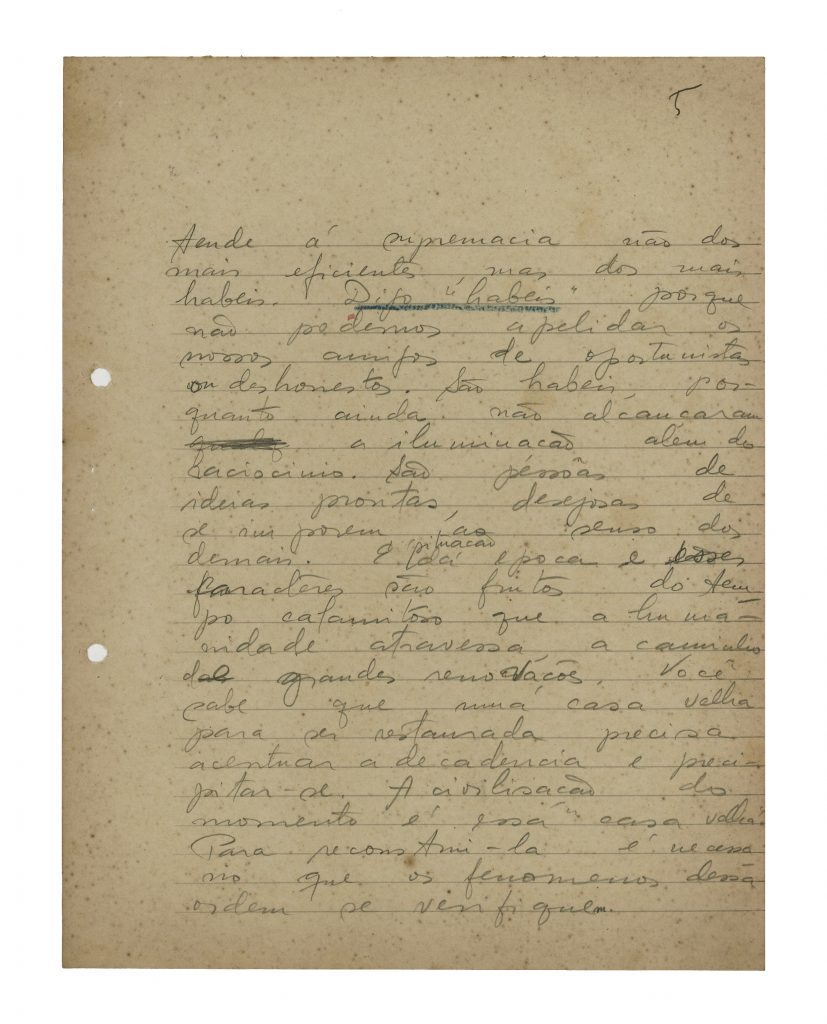 5
tende á supremacia não dos
mais eficientes, mas dos mais
habeis. Digo "habeis" porque
não podemos apelidar os
nossos amigos de oportunistas
ou deshonestos. São habeis, por-
quanto ainda não alcançaram
a iluminacão além do
raciocinio. São péssôas de
ideias prontas, desejosas de
se imporem ao senso dos
demais. E da época e esses
caractéres são frutos do tem
po calamitoso que a humá-
nidade atravessa, a caminho
de grandes renovacões. Você
sabe que numa casa velha
para ser restaurada precisa
acentuar a decadencia e preci-
pitar-se. A civilisacão do
momento é essa "casa velha".
Para reconstrui-la é necessa
rio que os fenomenos dessa
ordem se verifiquem.